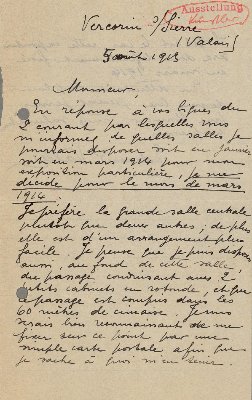 Ausstellung
Vercorin s/Sierre
(Valais)
5 août 1913
Monsieur.
En réponse à vos lignes du
2 courant par lesquelles vous
m'informez de quelles salles je
pourrais disposer soit en janvier
soit en mars 1914 pour mon
exposition particulière, je me
décide pour le mois de mars
1914.
Je préfère la grande salle centrale
plutôt que deux autres; de plus
elle est d'un arrangement plus
facile. Je pense que je puis disposer
aussi, au fond de cette salle
du passage conduisant aux 2
petits cabinets en rotonde, et que
ce passage est compris dans les
60 mètres de cimaise. Je vous
serais bien reconnaissant de me
fixer sur ce point par une
simple carte postale afin que
je sache à quoi m'en tenir.